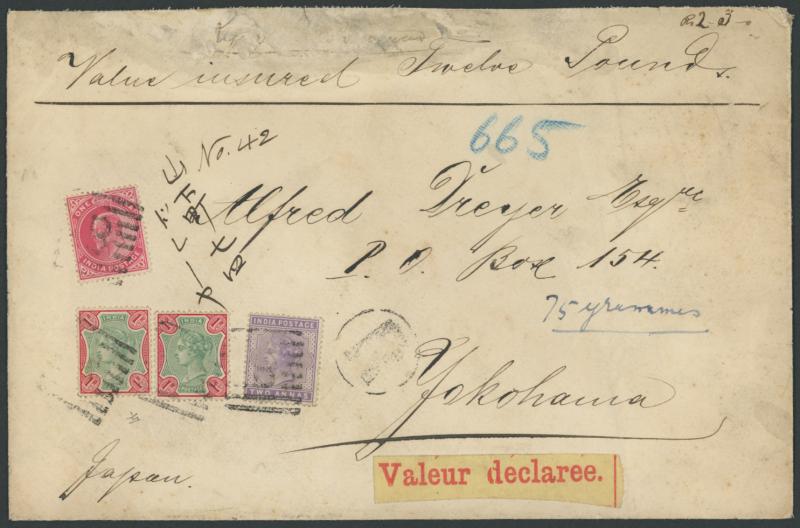 Rs 2-3-
Value insured Twelve Pounds.
665
No. 42
山下町七四
Alfred Dreyer Esqre
P. O. Box 154.
75 grammes
Yokohama
Japan.
ONE
INDIA POSTAGE
INDIA
INDIA
INDIA POSTAGE
TWO ANNAS
Valeur déclarée.